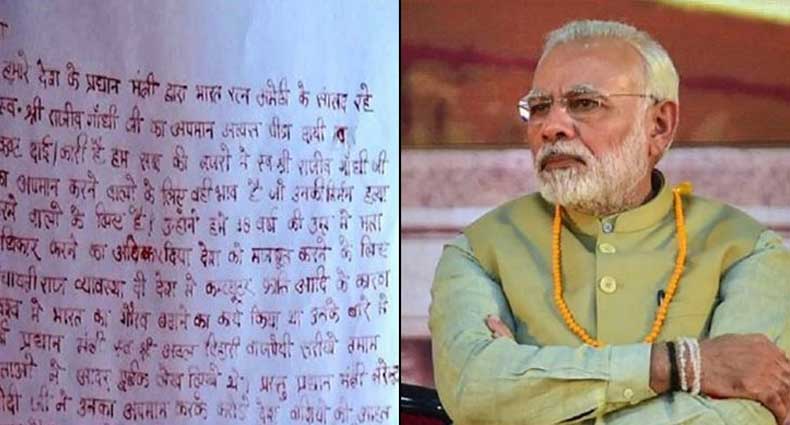 हमारे देश के प्रधान मंत्री द्वारा भारत रत्न अमेठी के सांसद रहे
स्व. श्री राजीव गाँधी जी का अपमान अत्यन्त पीडा दायी व
दाई/कारी है हम सब की नजरो मे स्व श्री राजीव गाँधी जी
का अपमान करने वालो के लिए वही भाव है जो उनकी निर्मम हत्या
करने वालो के लिए है। उन्होंने हमे 18 वर्ष की उम्र मे मता
धिकार करने का अधिकार दिया देश को मजबूत करने के लिए
पंचायती राज व्यवस्था दी देश मे कम्प्यूटर क्रांति आदि के कारण
विश्व मे भारत का गौरव बढाने का कार्य किया था उनके बारे मे
प्रधान मंत्री स्व श्री अटल बिहारी वाजपेयी सरीखे तमाम
नेताओ ने आदर पूर्वक लेख लिखे थे। परन्तु प्रधान मंत्री नरेन्द्र
मोदी जी ने उनका अपमान करके करोडो देश वासियो को आहत